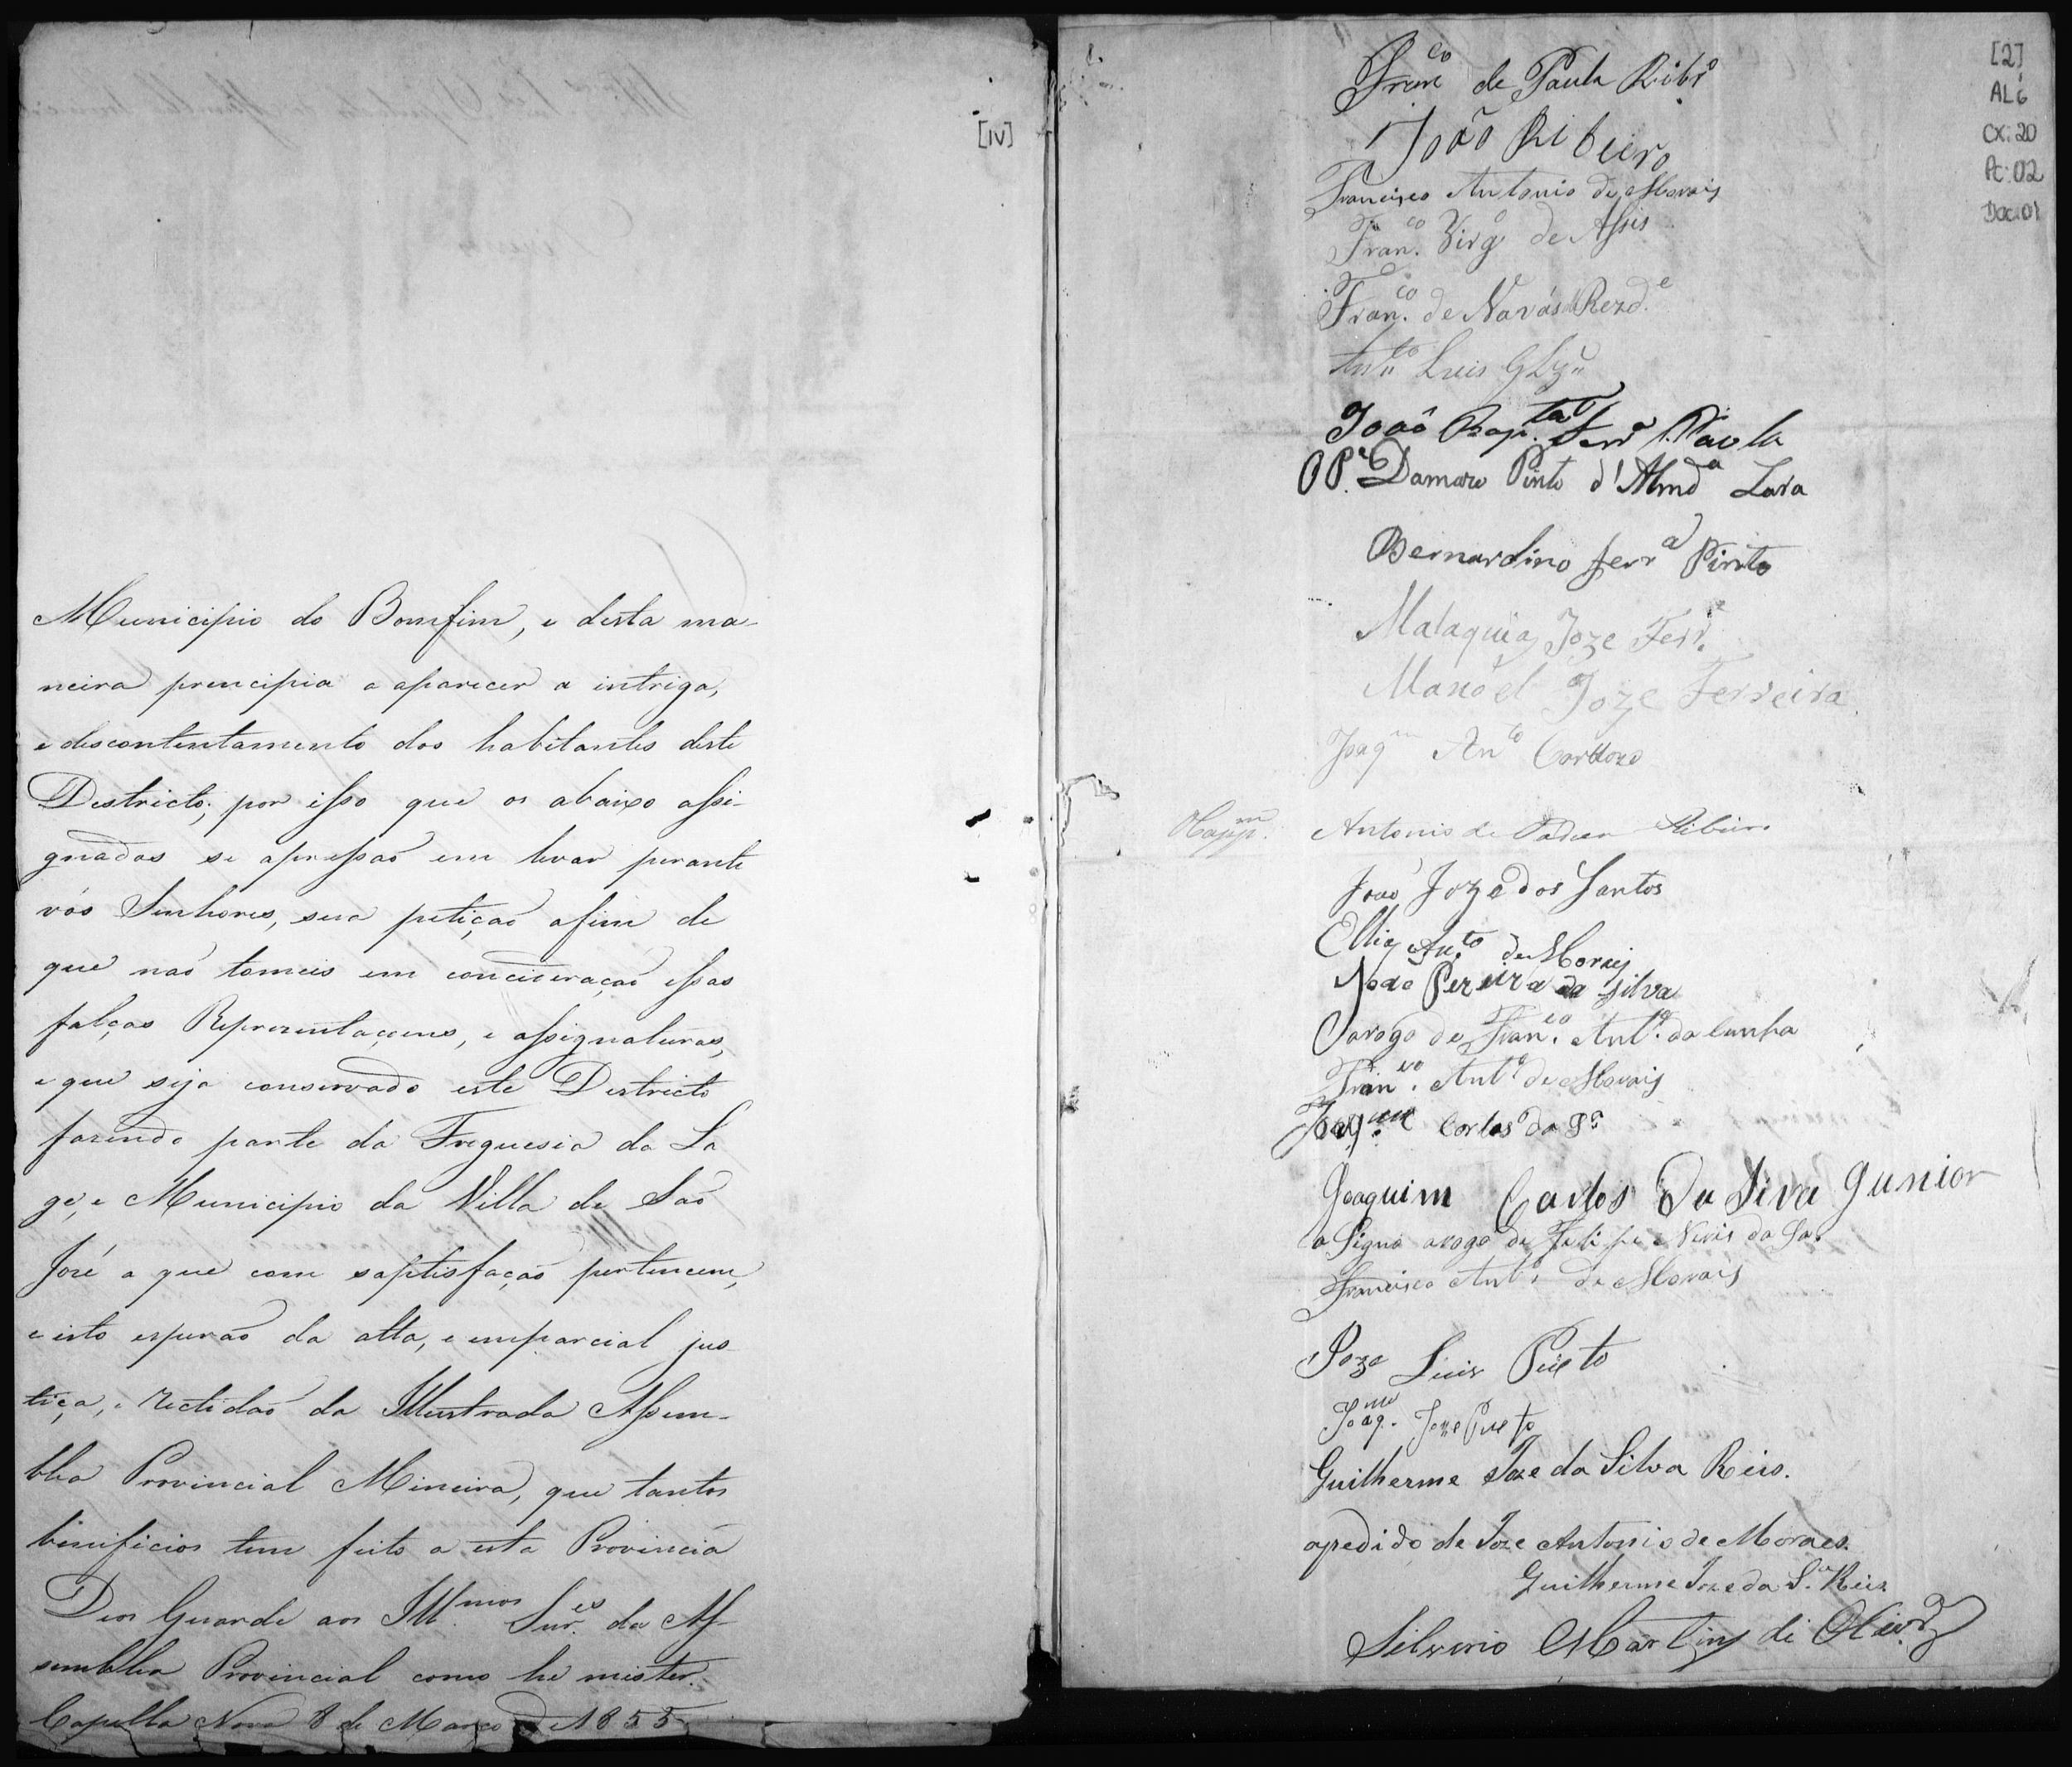 [1v]
Municipio do Bomfim, e desta ma-
neira principia a aparecer a intriga,
e descontentamento dos habitantes deste
Destricto; por isso que os abaixo assi-
gnados se apressaõ em levar perante
vós Senhores, sua petiçaõ afim de
que naõ tomeis em conciderаçaõ essas
falças Reprezentaçoens, e assignaturas,
e que seja conservado este Destricto
fazendo parte da Freguesia da La
ge, e Municipio da Villa de Saõ
José a que com saptisfaçaõ pertencem,
e isto esperaõ da alta, e emparcial jus
tiça, e rectidaõ da Illustrada Assem-
blea Provincial Mineira, que tantos
beneficios tem feito a esta Provincia
Deos Guarde aos Ill.mos Snr.es da As-
semblea Provincial como he mister.
Capella Nova 8 de Março de 1855
[2]
AL6
CX: 20
Pc: 02
Doc: 01
Franco de Paula Ribro
João Ribeiro
Francisco Antonio de Morais
Fran.co Virgo de Assis
Fran.co de Navás Rezd.e
Anto Luis
João Bap.ta Ferra Paula
O P.e Damazo Pinto d'Almda Lara
Bernardino Ferra Pinto
Malaquias Joze Ferr.a
Manoel Joze Ferreira
Joaqm Anto Cardozo
Antonio de Padua Ribeiro
João Joze dos Santos
Elias An.to de Morais
João Pereira da Silva
Tarogo de Fran.co Ant.o da Cunha
Fran.co Ant.o de Morais
Joaq.m Carlos da Sa
Joaquim Carlos Da Siva Junior
a Signo arogo de Felipe Neris da Sa.
Francisco Ant.o de Morais
Joze Luis Pinto
Joaq.m Joze
Guilherme Joze da Silva Reis.
apedido de Joze Antonio de Moraes.
Guilherme Joze da S.a Reis
Silverio Martins de Olivra